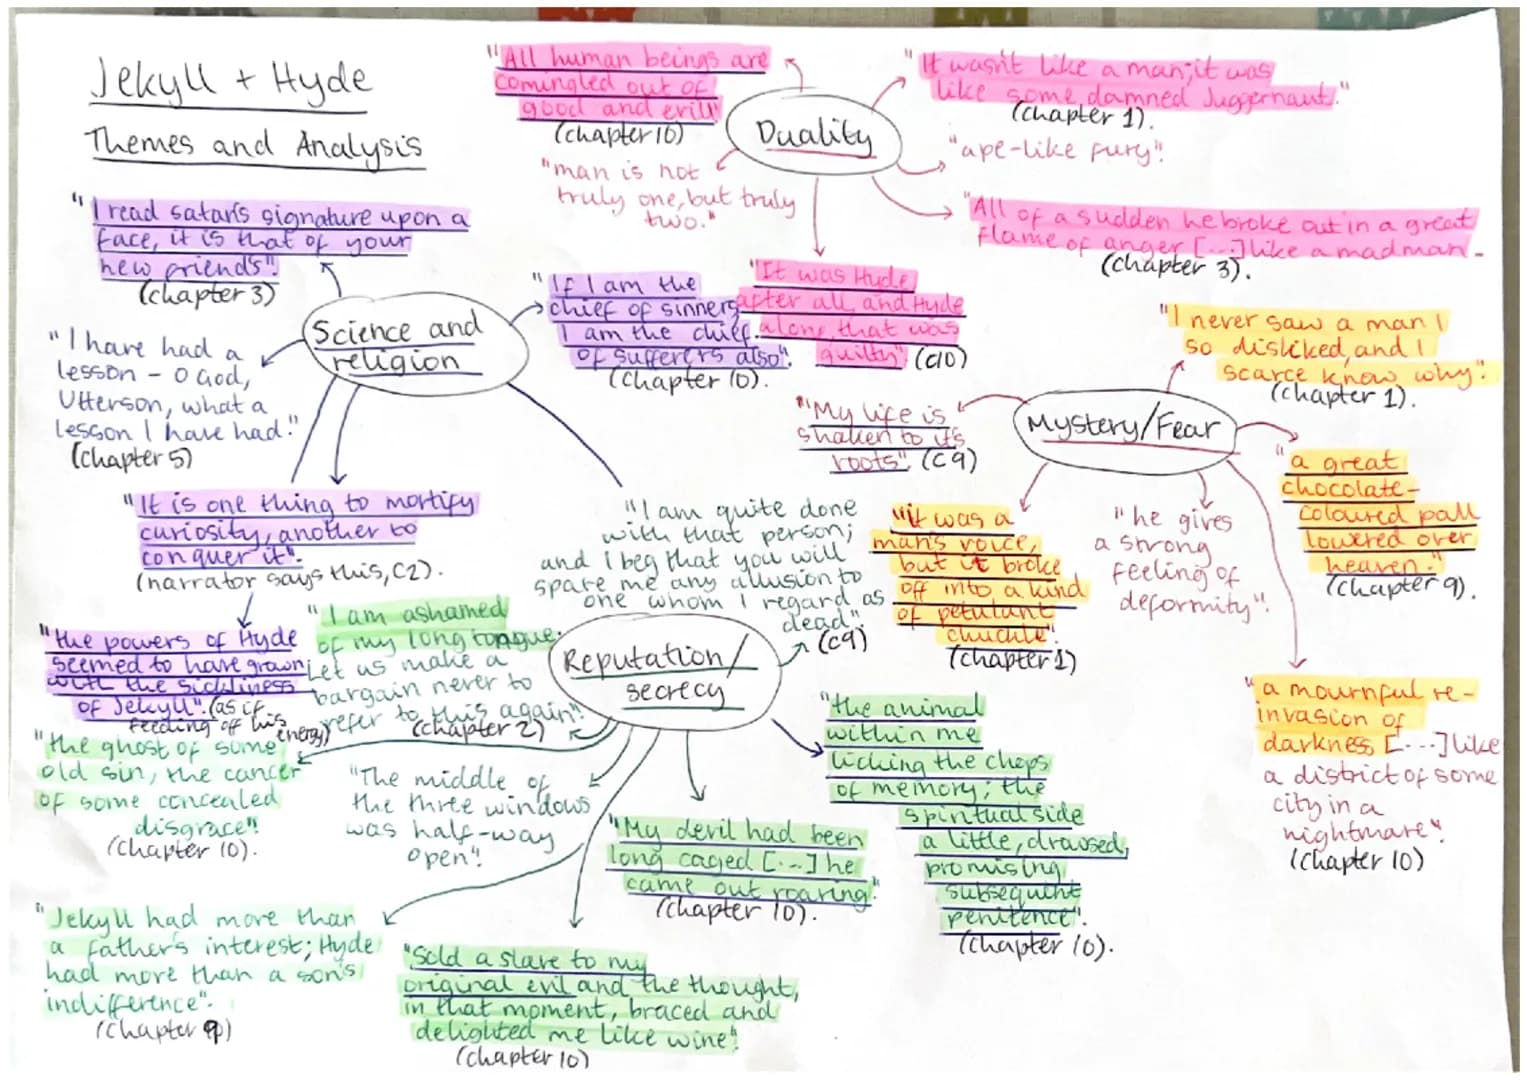 Jekyll + Hyde
Themes and Analysis
"All human beings are
comingled out of
good and evill"
(chapter 10)
Duality
"It wasn't like a man; it was
like some damned Juggernaut."
(chapter 1).
"ape-like fury".
"man is not
truly one, but truly
two."
"All of a sudden he broke out in a great
flame of anger [...] like a madman-
(chapter 3).
"It was Hyde
after all, and Hyde
alone, that was
guilty" (c10)
"I read satan's signature upon a
face, it is that of your
new friends".
(chapter 3)
Science and
religion
"If I am the
chief of sinners,
I am the chief
of sufferers also".
(chapter 10).
"I have had a
lesson - O God,
Utterson, what a
lesson I have had."
(chapter 5)
"It is one thing to mortify
curiosity, another to
conquer it".
(narrator says this, C2).
"the powers of Hyde
seemed to have grown
with the sickliness
of Jekyll". (as if
feeding off his
energy)
"I never saw a man I
so disliked, and I
scarce know why".
(chapter 1).
Mystery/Fear
"My life is
shaken to its
roots". (c9)
"a great
chocolate-
coloured pall
lowered over
heaven."
(chapter 9).
"it was a
man's voice,
but it broke
off into a kind
of petulant
chuckle".
(chapter 1)
"he gives
a strong
feeling of
deformity".
"a mournful re-
invasion of
darkness [....] like
a district of some
city in a
nightmare".
(chapter 10)
"I am quite done
with that person;
and I beg that you will
spare me any allusion to
one whom I regard as
dead".
(c9)
Reputation/
secrecy
"I am ashamed
of my long tongue.
Let us make a
bargain never to
refer to this again".
(chapter 2)
"the ghost of some
old sin, the cancer
of some concealed
disgrace".
(chapter 10).
"The middle of
the three windows
was half-way
open".
"My devil had been
long caged [...] he
came out roaring".
(chapter 10).
"the animal
within me
licking the chops
of memory; the
spiritual side
a little, drowsed,
promising
subsequent
penitence".
(chapter 10).
"Jekyll had more than
a father's interest; Hyde
had more than a son's
indifference".
(chapter
"Sold a slave to my
original evil and the thought,
in that moment, braced and
delighted me like wine".
(chapter 10)